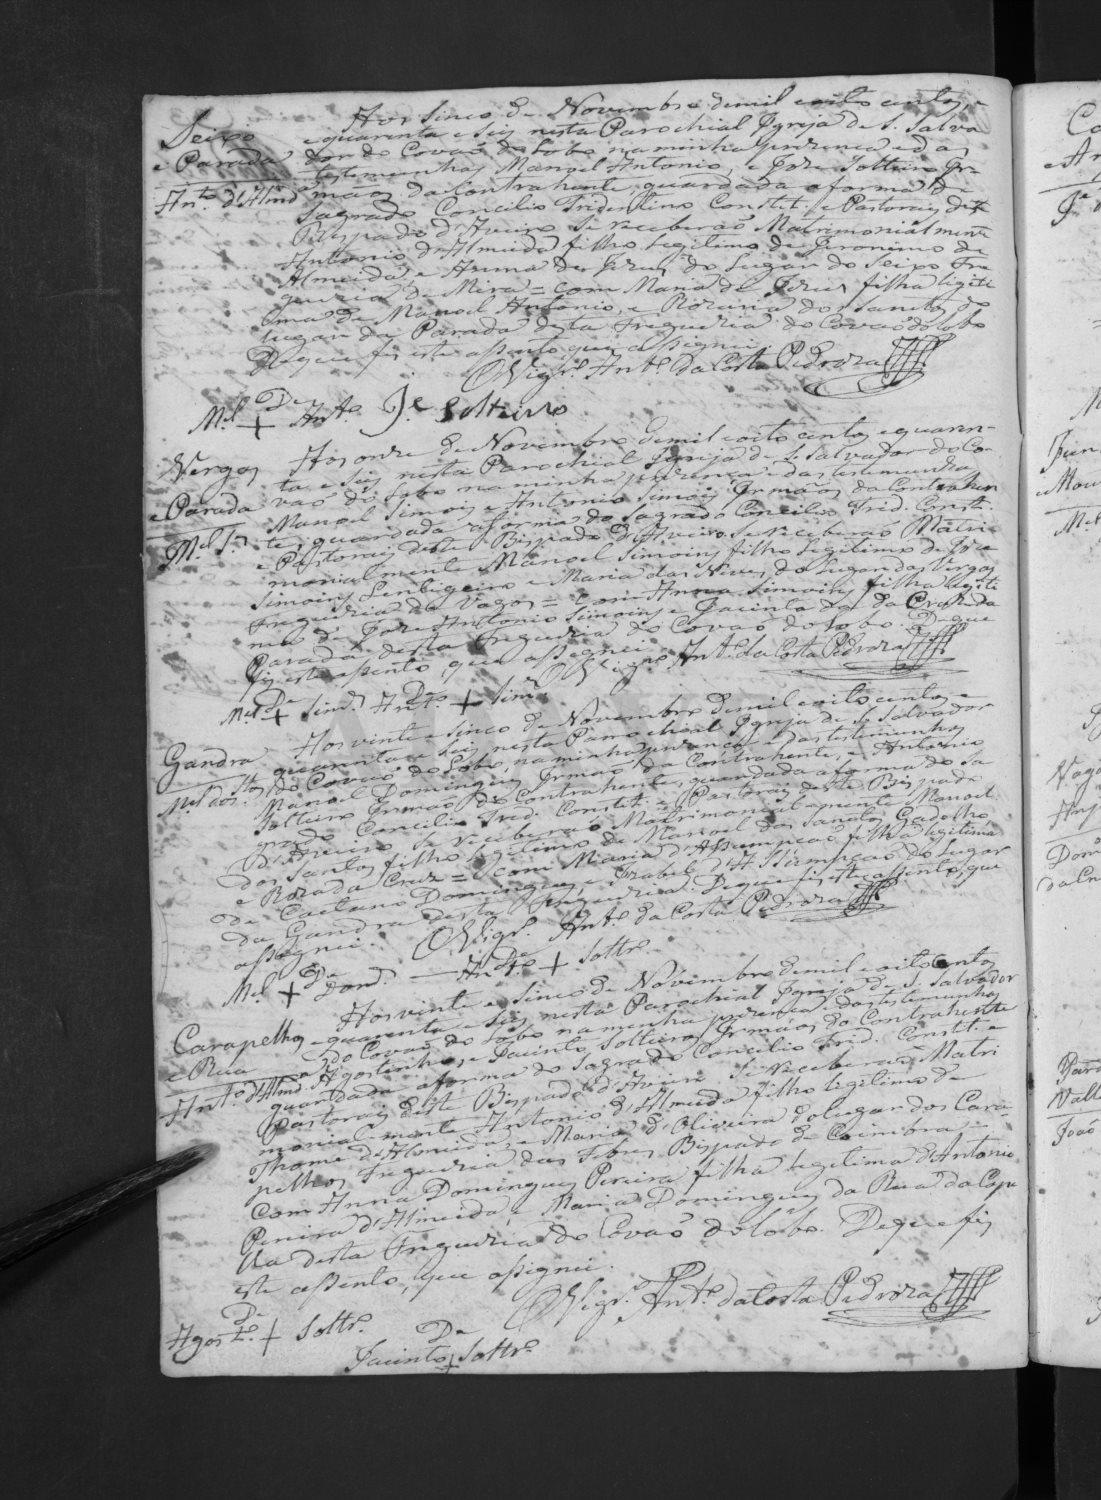 Seixo
e Parada
Ant.º d'Almd.ª
Aos sinco de Novembro de mil e oito centos e
quarenta e seis nesta Parochial Igreja de S. Salva
dor do Covaõ do Lobo na minha prezença e das
testemunhas Manoel Antonio, e Joze Solteiro Ir-
maõs da Contrahente, guardada a forma do
Sagrado Concilio Tridentino Constit. e Pastorais deste
Bispado d'Aveiro Se receberaõ Matrimonialmente
Antonio d'Almeida filho legitimo de Jeronimo de
Almeida, e Anna de Jezus do Lugar do Seixo Fre
guezia de Mira = com Maria de Jezus filha legiti
ma de Manoel Antonio, e Rozaria dos Santos do
lugar da Parada desta Freguezia do Covaõ do Lobo
De que fis este assento que assignei
O Vigr.º Ant.º da Costa Pedroza
De
M.el + Ant.º J.e Solteiro
Vergas
e Parada
M.el S.es
Aos onze de Novembro de mil e oito centos e quaren-
ta e seis nesta Parochial Igreja de S. Salvador do Co-
vaõ do Lobo na minha prezença e das testemunhas
Manoel Simois e Antonio Simois Irmaõs da Contrahen
te, guardada a forma do Sagrado Concilio Trid. Constit.
e Pastorais deste Bispado d'Aveiro Se receberaõ Matri-
monialmente Manoel Simoins filho legitimo de Joze
Simoins e Maria das Neves do Lugar das Vergas
Freguezia de Vagos = com Anna Simoins filha legiti
ma de Joze Antonio Simoins e Jacinta da Cruz da
Parada desta Freguezia do Covaõ do Lobo. De que
fis este assento que assignei
O Vigr.º Ant.º da Costa Pedroza
De De
M.el + Sim.s Ant.º + Sim.s
Gandra
M.el dos S.tos
Aos vinte e sinco de Novembro de mil e oito centos e
quarenta e seis nesta Parrochial Igreja de S. Salvador
do Covaõ do Lobo, na minha prezença e das testemunhas
Manoel Domingues Irmaõ da Contrahente, e Antonio
Solteiro Irmaõ do Contrahente, guardada a forma do Sa
grado Concilio Trid. Constit. e Pastorais deste Bispado
d'Aveiro Se receberaõ Matrimonial-mente Manoel
dos Santos filho legitimo de Manoel dos Santos Gadelho
e Roza da Cruz = com Maria d'Assumpçaõ filha legitima
de Caetano Domingues, e Izabel d'Assumpçaõ do Lugar
da Gandra desta Freguezia. De que fis este assento, que
assignei.
O Vigr.º Ant.º da Costa Pedroza
De De
M.el + Dom.s — Ant.º + Soltr.º
Carapelhos
e Rua
Ant.º d'Almd.ª
Aos vinte e sinco de Novembro de mil e oito Centos
e quarenta e seis nesta Parochial Igreja de S. Salvador
do Covaõ do Lobo na menha prezença e das testemunhas
Agostinho, e Jacinto Solteiros Irmaõs do Contrahente
guardada a forma do Sagrado Concilio Trid. Constit. e
Pastorais deste Bispado d'Aveiro Se receberaõ Matri
monial-mente Antonio d'Almeida filho legitimo de
Thome d'Almeida, e Maria d'Oliveira do lugar dos Cara
pelhos Freguezia das Febres Bispado de Coimbra =
com Anna Domingues Pereira filha legitima d'Antonio
Pereira d'Almeida, e Maria Domingues da Rua da Cape
lla desta Freguezia do Covaõ do Lobo. De que fis
este assento, que assignei.
O Vigr.º Ant.º da Costa Pedroza
De
Agost.º + Soltr.º
De
Jacinto + Soltr.º